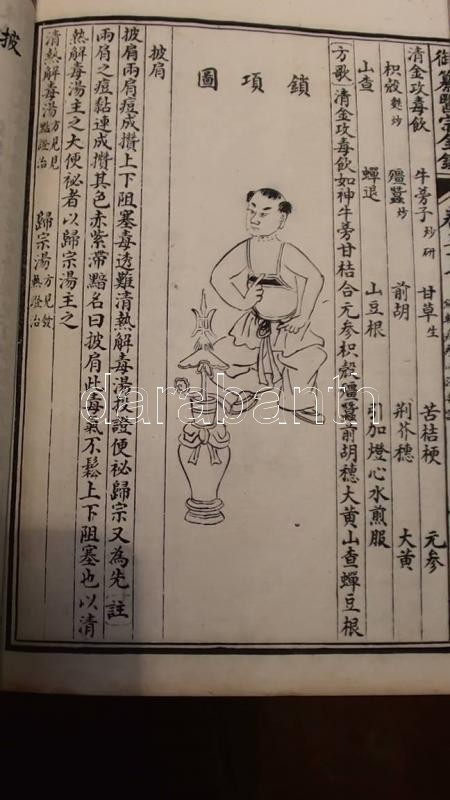 御纂醫宗金鑑
清金攻毒飲 牛蒡子炒研 甘草生 苦桔梗 元參
枳殼麩炒 殭蠶炒 前胡 荆芥穗 大黃
山查 蟬退 山豆根 引加燈心水煎服
方歌 清金攻毒飲如神牛蒡甘桔合元參枳殼殭蠶前胡穗大黃山查蟬豆根
鎖項圖
披肩
披肩兩肩痘成攢上下阻塞毒透難清熱解毒湯投證便祕歸宗又為先 註
兩肩之痘黏連成攢其色赤紫滯黯名曰披肩此毒氣不鬆上下阻塞也以清
熱解毒湯主之大便祕者以歸宗湯主之
清熱解毒湯方見見點證治 歸宗湯方見發熱證治
披
darabanth